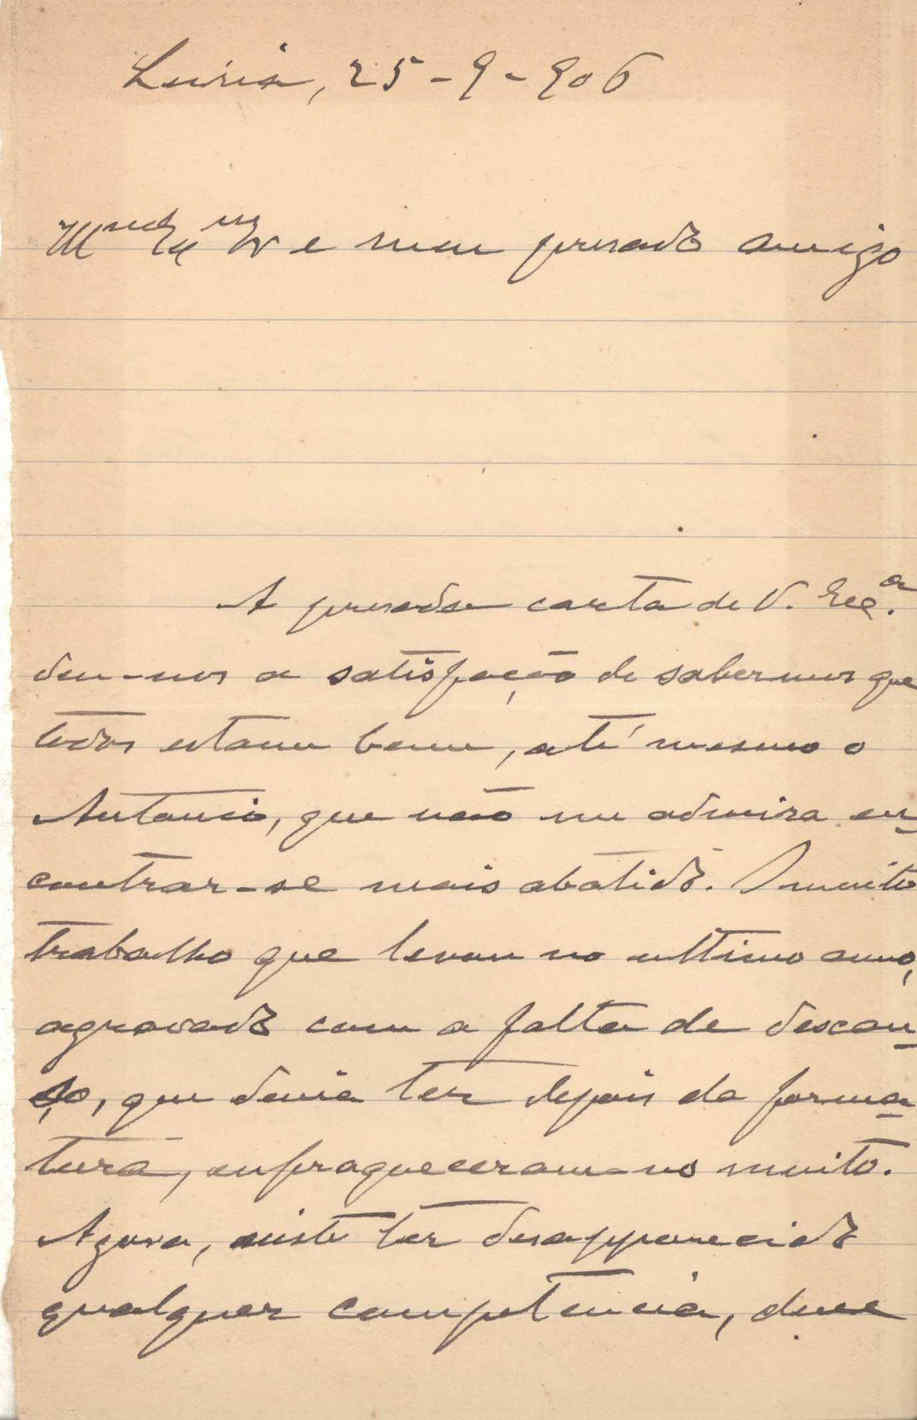 Leiria, 25-9-906
e meu presado amigo
A presada carta de V. Exc.ª
deu-nos a satisfação de sabermos que
todos estam bem, até mesmo o
Antonio, que não me admira en-
contrar-se mais abatido. O muito
trabalho que levou no ultimo anno,
agravado com a falta de descan-
ço, que devia ter depois da forma-
tura, enfraqueceram-no muito.
Agora, visto ter desapparecido
qualquer competencia, deve